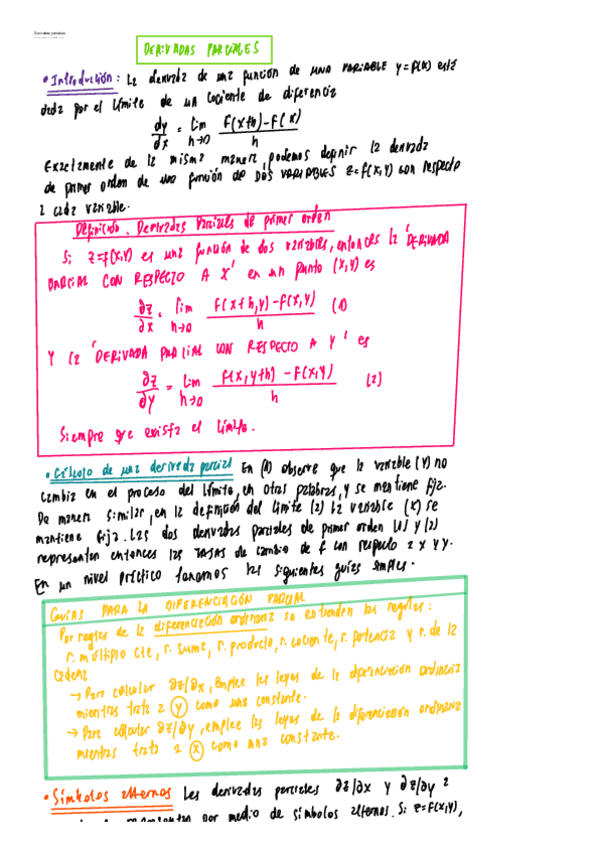 DERIVADAS PARCIALES
• Introducción: La derivada de una función de UNA VARIABLE y=f(x) está
dada por el límite de un cociente de diferencia
dy/dx = lim h→0 F(x+h)-F(x) / h
Exactamente de la misma manera, podemos definir la derivada
de primer orden de una función de DOS VARIABLES z=f(x,y) con respecto
a cada variable.
Definición. Derivadas Parciales de primer orden
Si z=f(x,y) es una función de dos variables, entonces la 'DERIVADA
PARCIAL CON RESPECTO A X' en un punto (x,y) es
∂z/∂x = lim h→0 f(x+h,y)-f(x,y) / h (1)
Y la 'DERIVADA PARCIAL CON RESPECTO A Y' es
∂z/∂y = lim h→0 f(x,y+h) - f(x,y) / h (2)
Siempre que exista el límite.
• Cálculo de una derivada parcial En (1) observe que la variable (y) no
cambia en el proceso del límite, en otras palabras, y se mantiene fija.
De manera similar, en la definición del límite (2) la variable (x) se
mantiene fija. Las dos derivadas parciales de primer orden (1) y (2)
representan entonces las TASAS de cambio de f con respecto a x y y.
En un nivel práctico tenemos las siguientes guías simples.
GUÍAS PARA LA DIFERENCIACIÓN PARCIAL
Por reglas de la diferenciación ordinaria se entienden las reglas:
r. múltiplo cte, r. suma, r. producto, r. cociente, r. potencia y r. de la
cadena
→ Para calcular ∂z/∂x, emplee las leyes de la diferenciación ordinaria
mientras trata a y como una constante.
→ Para calcular ∂z/∂y, emplee las leyes de la diferenciación ordinaria
mientras trata a x como una constante.
• Símbolos alternos Las derivadas parciales ∂z/∂x y ∂z/∂y a
por medio de símbolos alternos. Si z=f(x,y),